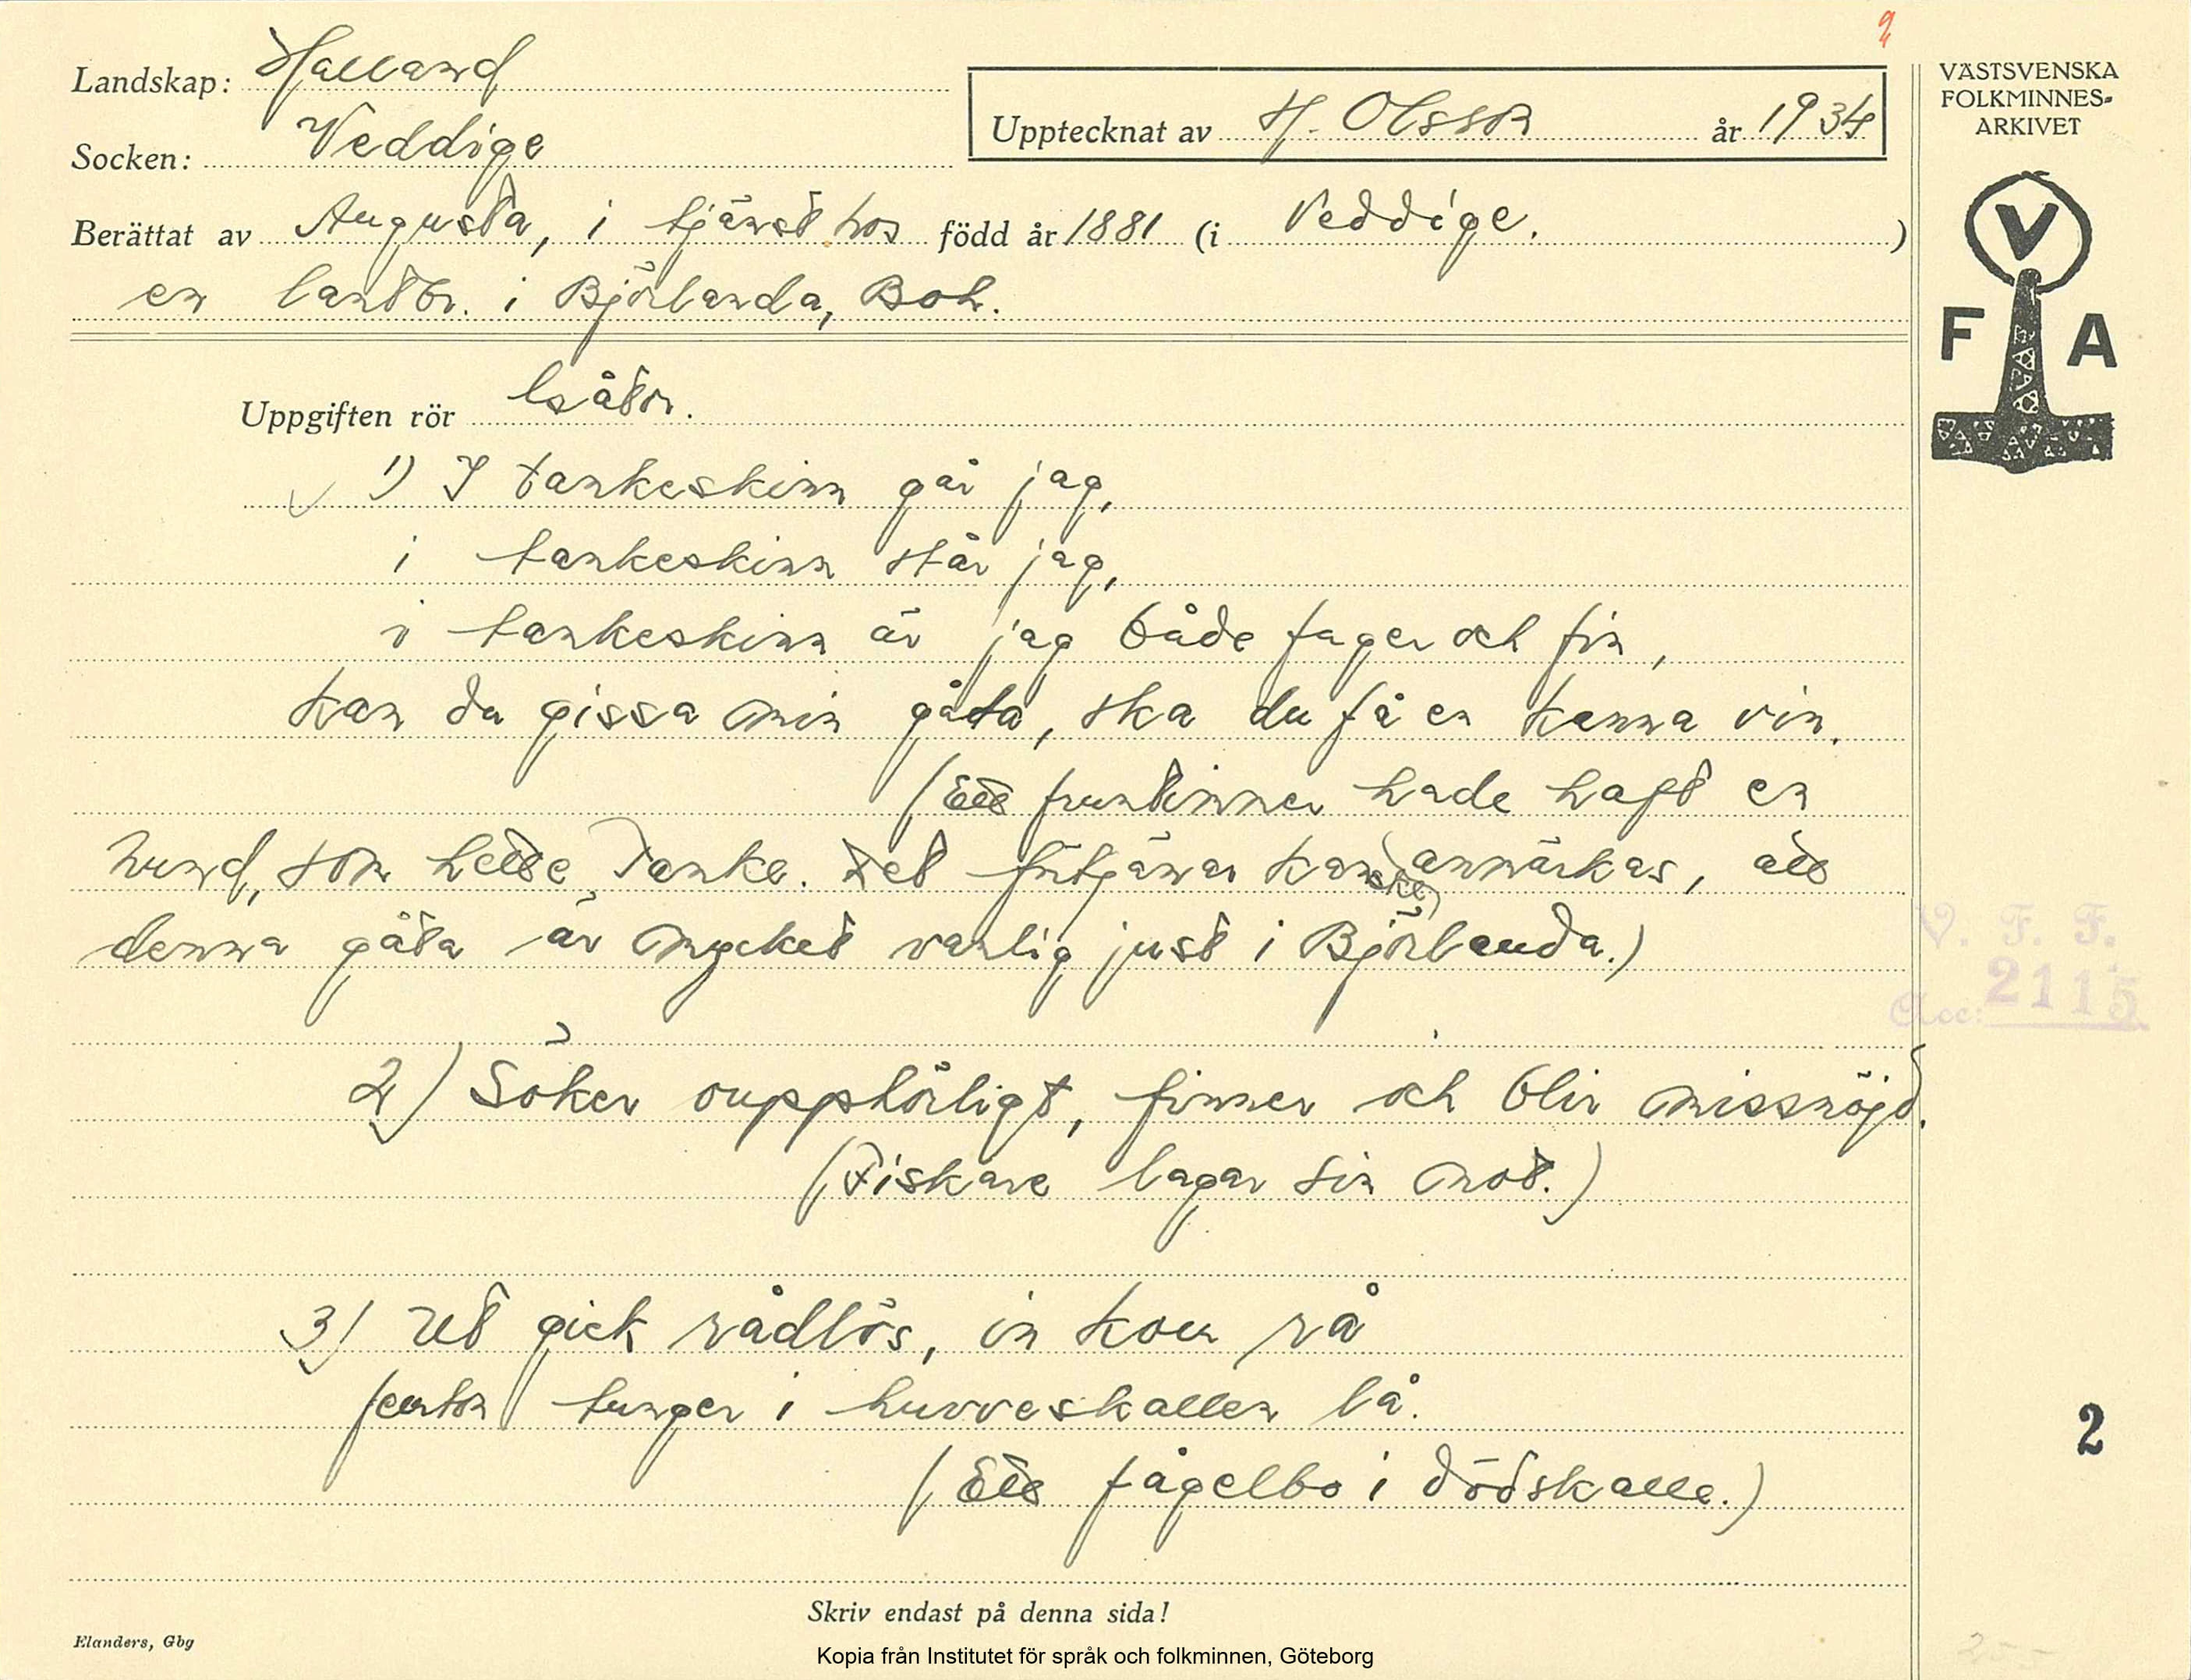 Landskap: Halland
Socken: Veddige
Upptecknat av H. Olsson år 1934
Berättat av Augusta, i tjänst hos född år 1881 (i Veddige. )
en lantbr. i Björlanda, Boh.
VÄSTSVENSKA
FOLKMINNES-
ARKIVET
V
F A
Uppgiften rör Gåtor.
1) I tankeskinn går jag,
i tankeskinn står jag,
i tankeskinn är jag både fager och fin,
kan du gissa min gåta, ska du få en kanna vin.
(Ett fruntimmer hade haft en
hund, som hette Tanke. Det förtjänar kanske anmärkas, att
denna gåta är mycket vanlig just i Björlanda.)
V. F. F.
Acc: 2115
2) Söker oupphörligt, finner och blir missnöjd.
(Fiskare lagar sin not.)
3) Ut gick rådlös, in kom rå
femton tunger i huvveskallen lå.
(Ett fågelbo i dödskalle.)
2
Skriv endast på denna sida!
Elanders, Gbg
Kopia från Institutet för språk och folkminnen, Göteborg